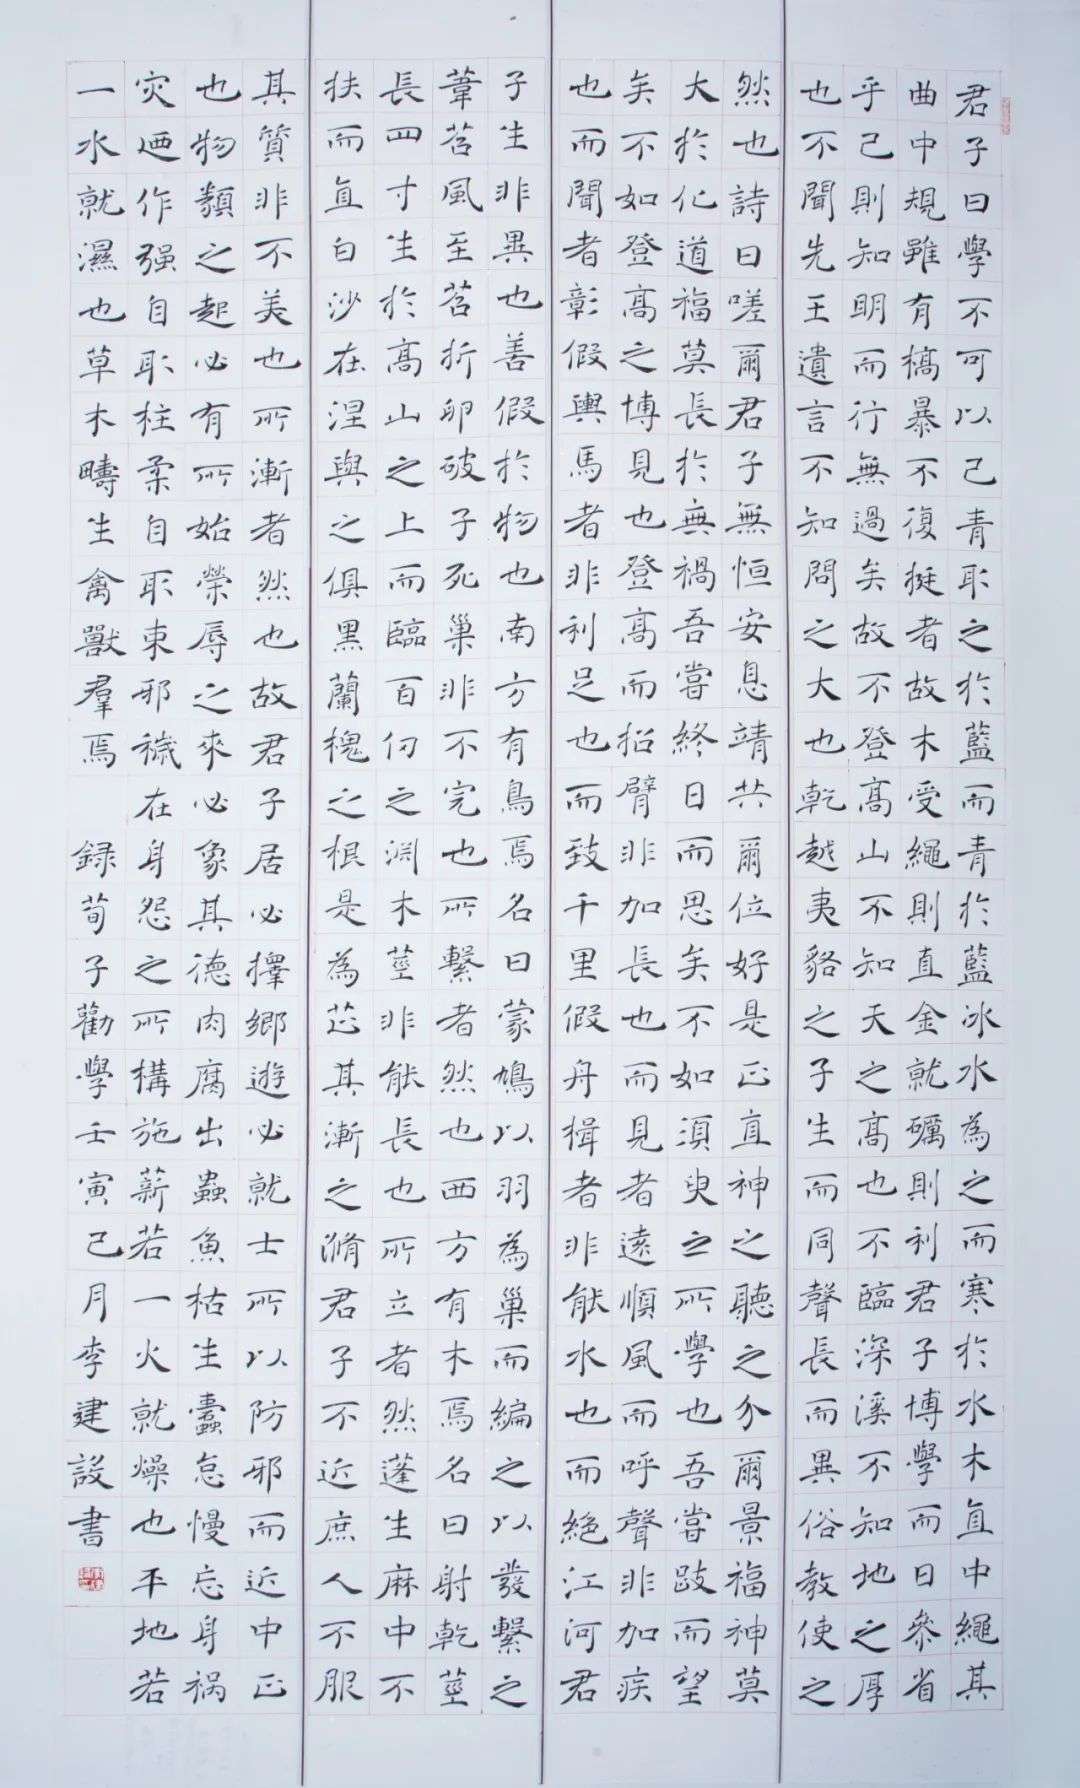 君子曰學不可以己青取之於藍而青於藍冰水為之而寒於水木直中繩其
曲中規雖有槁暴不復挺者故木受繩則直金就礪則利君子博學而日參省
乎己則知明而行無過矣故不登高山不知天之高也不臨深溪不知地之厚
也不聞先王遺言不知問之大也乾越夷貉之子生而同聲長而異俗教使之
然也詩曰嗟爾君子無恒安息靖共爾位好是正直神之聽之介爾景福神莫
大於化道福莫長於無禍吾嘗終日而思矣不如須臾之所學也吾嘗跂而望
矣不如登高之博見也登高而招臂非加長也而見者遠順風而呼聲非加疾
也而聞者彰假輿馬者非利足也而致千里假舟楫者非能水也而絕江河君
子生非異也善假於物也南方有鳥焉名曰蒙鳩以羽為巢而編之以發繫之
葦苕風至苕折卵破子死巢非不完也所繫者然也西方有木焉名曰射乾莖
長四寸生於高山之上而臨百仞之淵木莖非能長也所立者然蓬生麻中不
扶而直白沙在涅與之俱黑蘭槐之根是為芷其漸之滫君子不近庶人不服
其質非不美也所漸者然也故君子居必擇鄉遊必就士所以防邪而近中正
也物類之起必有所始榮辱之來必象其德肉腐出蟲魚枯生蠹怠慢忘身禍
灾迺作强自取柱柔自取束邪穢在身怨之所構施薪若一火就燥也平地若
一水就濕也草木疇生禽獸羣焉 録荀子勸學壬寅巳月李建設書